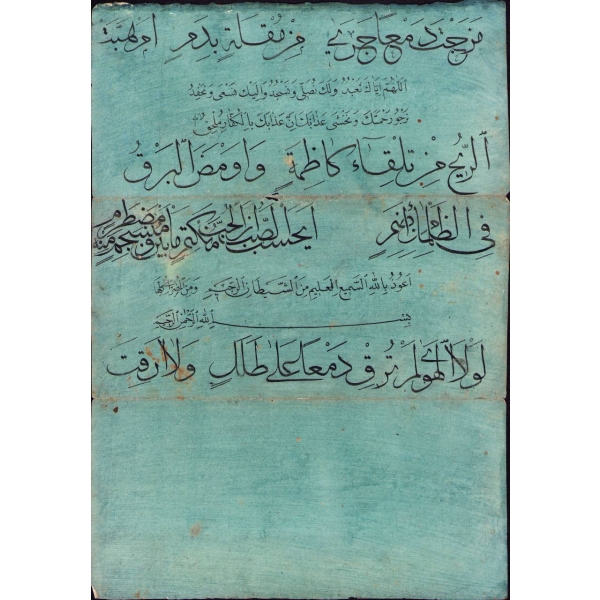 مزجت دمعا جرى من مقلة بدم ام هبت
اللهم اياك نعبد ولك نصلي ونسجد واليك نسعى ونحفد
نرجو رحمتك ونخشى عذابك ان عذابك بالكفار ملحق
الريح من تلقاء كاظمة واومض البرق
في الظلماء من اضم ايحسب الصب ان الحب منكتم ما بين منسجم منه ومضطرم
اعوذ بالله السميع العليم من الشيطان الرجيم
بسم الله الرحمن الرحيم
لولا الهوى لم ترق دمعا على طلل ولا ارقت